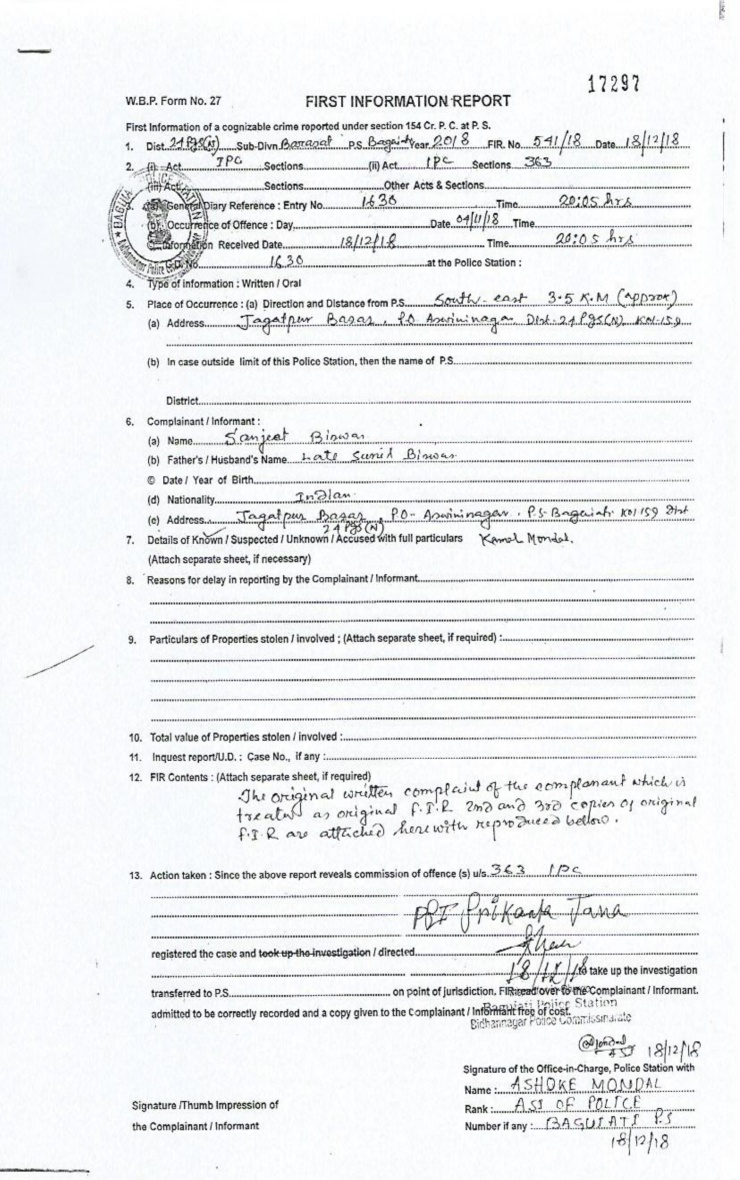 17297
W.B.P. Form No. 27 FIRST INFORMATION REPORT
First Information of a cognizable crime reported under section 154 Cr. P. C. at P. S.
1. Dist. 24 PGS(N) Sub-Divn. Barasat P.S. Baguiati Year 2018 FIR. No. 541/18 Date 18/12/18
2. (i) Act IPC Sections (ii) Act IPC Sections 363
(iii) Act Sections Other Acts & Sections
3. (a) General Diary Reference : Entry No. 1630 Time 20:05 hrs
(b) Occurrence of Offence : Day Date 04/11/18 Time
Information Received Date 18/12/18 Time 20:05 hrs
G.D. No. 1630 at the Police Station :
4. Type of information : Written / Oral
5. Place of Occurrence : (a) Direction and Distance from P.S. South-east 3.5 K.M (approx)
(a) Address Jagatpur Bazar, P.O Aswininagar Dist-24 PGS(N) Kol-159
(b) In case outside limit of this Police Station, then the name of P.S.
District
6. Complainant / Informant :
(a) Name Sanjeet Biswas
(b) Father's / Husband's Name Late Sunil Biswas
© Date / Year of Birth
(d) Nationality Indian
(e) Address Jagatpur Bazar, PO- Aswininagar, P.S-Baguiati Kol 159 Dist
24 PGS(N)
7. Details of Known / Suspected / Unknown / Accused with full particulars Kamal Mondal.
(Attach separate sheet, if necessary)
8. Reasons for delay in reporting by the Complainant / Informant
9. Particulars of Properties stolen / involved ; (Attach separate sheet, if required) :
10. Total value of Properties stolen / involved :
11. Inquest report/U.D. : Case No., if any :
12. FIR Contents : (Attach separate sheet, if required)
The original written complaint of the complanant which is
treated as original F.I.R 2nd and 3rd copies of original
F.I.R are attached herewith reproduced bellow.
13. Action taken : Since the above report reveals commission of offence (s) u/s. 363 IPC
PSI Srikanta Jana
registered the case and took up the investigation / directed
18/12/18 to take up the investigation
transferred to P.S. on point of jurisdiction. FIR read over to the Complainant / Informant.
admitted to be correctly recorded and a copy given to the Complainant / Informant free of cost.
Baguiati Police Station
Bidhannagar Police Commissionerate
ASI 18/12/18
Signature of the Office-in-Charge, Police Station with
Name : ASHOKE MONDAL
Signature /Thumb Impression of Rank : ASI OF POLICE
the Complainant / Informant Number if any : BAGUIATI P.S
18/12/18